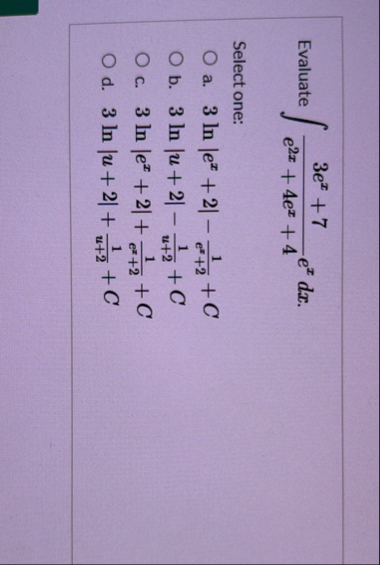 Evaluate ∫ (3eˣ + 7)/(e²ˣ + 4eˣ + 4) eˣ dx.
Select one:
a. 3 ln |eˣ + 2| − 1/(eˣ+2) + C
b. 3 ln |u + 2| − 1/(u+2) + C
c. 3 ln |eˣ + 2| + 1/(eˣ+2) + C
d. 3 ln |u + 2| + 1/(u+2) + C